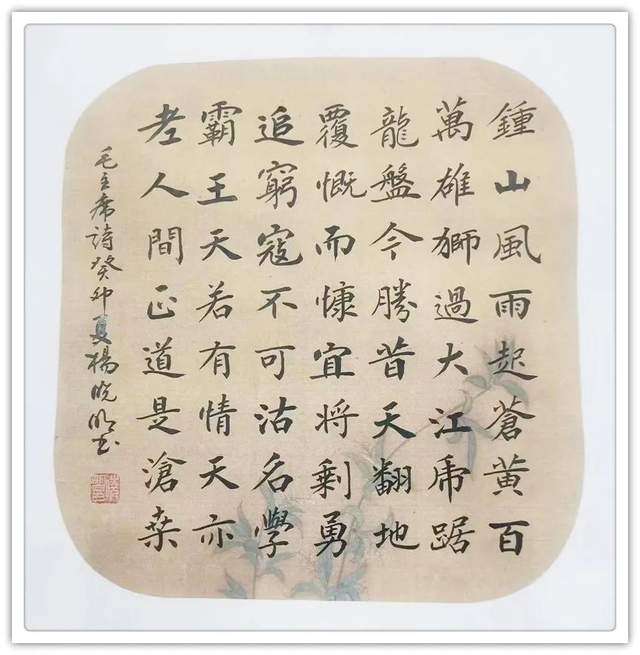 鍾山風雨起蒼黃百
萬雄獅過大江虎踞
龍盤今勝昔天翻地
覆慨而慷宜將剩勇
追窮寇不可沽名學
霸王天若有情天亦
老人間正道是滄桑
毛主席詩癸卯夏楊晓明书